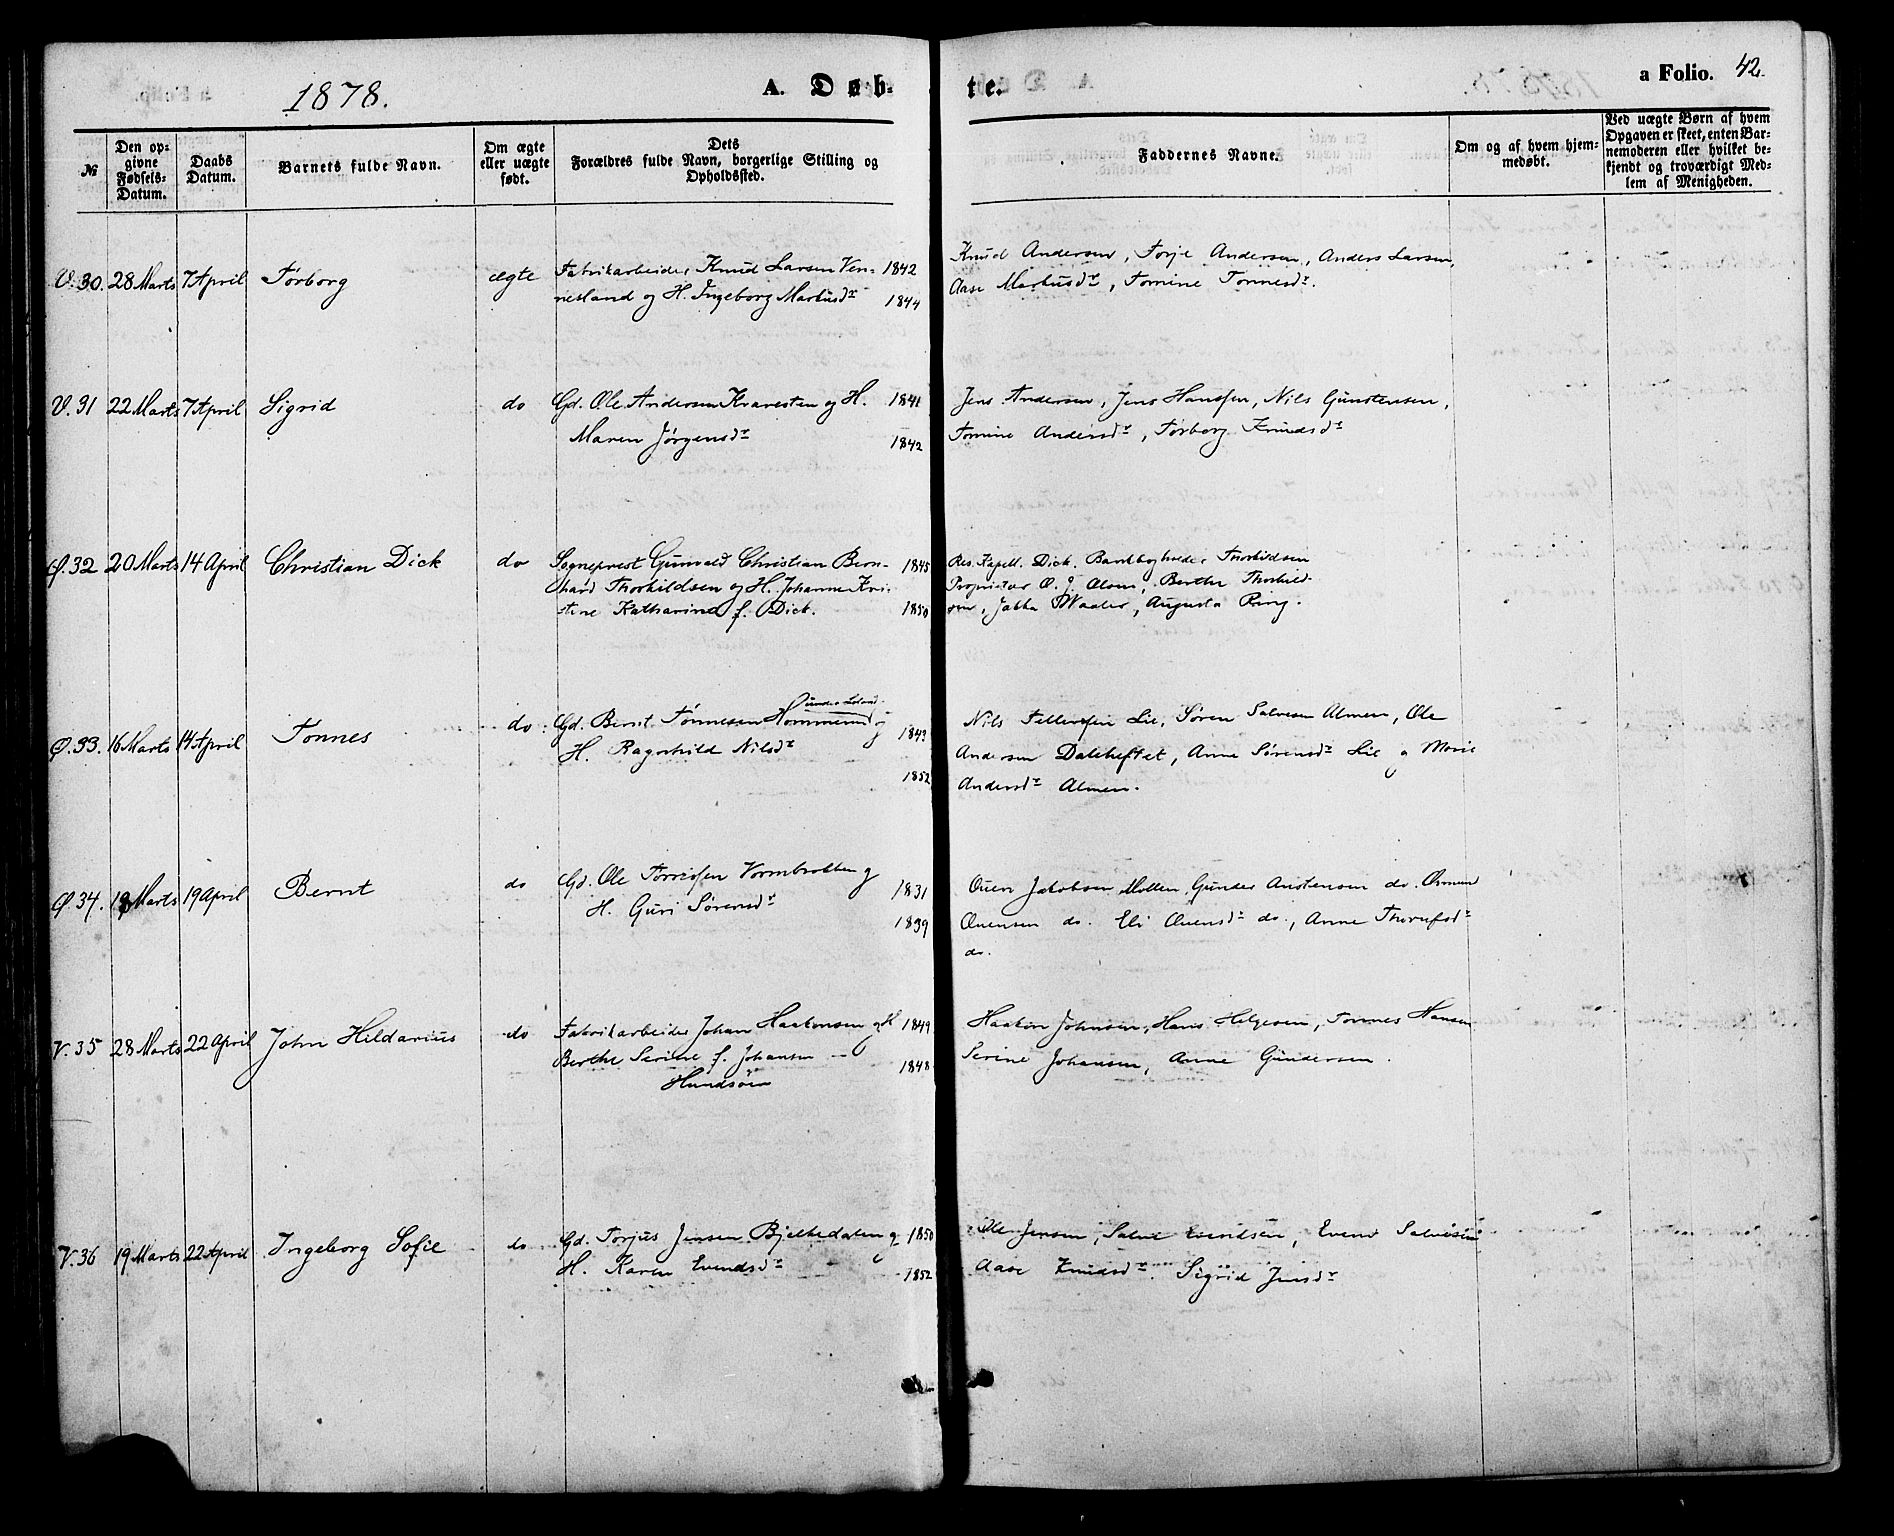 1878.
A. Døb-
te.
a Folio. 42.
№
Den op-
givne
Fødsels-
Datum.
Daabs
Datum.
Barnets fulde Navn.
Om ægte
eller uægte
født.
Dets
Forældres fulde Navn, borgerlige Stilling og
Opholdssted.
Faddernes Navne.
Om og af hvem hjem-
medøbt.
Ved uægte Børn af hvem
Opgaven er skeet, enten Bar-
nemoderen eller hvilket be-
kjendt og troværdigt Med-
lem af Menigheden.
V. 30. 28 Marts 7 April Tørborg ægte Fabrikarbeider Knud Larsen Ven- 1842
nesland og H. Ingeborg Markusdr 1844
Knud Andersen, Torje Andersen, Anders Larsen,
Aase Markusdr, Tomine Tønnesdr.
V. 31 22 Marts 7 April Sigrid do Gd. Ole Andersen Kravesten og H. 1841
Maren Jørgensdr 1842
Jens Andersen, Jens Hanssen, Nils Gunstensen,
Tomine Andersdr, Torborg Knudsdr
Ø. 32 20 Marts 14 April Christian Dick do Sogneprest Gunvald Christian Bern- 1845
hard Thorkildsen og H. Johanne Kri-
stine Katharina f. Dick. 1850
Res. Kapell. Dick. Bankbogholder Thorkildsen
Proprietær O. J. Olsen, Berthe Thorkild-
sen, Jakba Waaler, Augusta Ring.
Ø. 33. 16 Marts 14 April Tønnes do Gd. Bernt Tønnesen Hommeren og 1849
H. Ragnhild Nilsdr 1852
Nils Tellefsen Lie, Sören Salvesen Almen, Ole
Andersen Daleheftet, Anne Sørensdr Lie og Marie
Andersdr Almen.
Ø. 34. 19 Marts 19 April Bernt do Gd. Ole Vormbrokken og 1831
H. Guri Sørensdr 1839
Ouen Jakobsen Mollen, Gunder Anstensen do.
Ouensen do. Eli Ouensdr do., Anne
do.
V. 35 28 Marts 22 April John Hildarius do Fabrikarbeider Johan Haakonsen og H 1849
Berthe Serine f. Johansen 1848
Hundsøen
Haakon Johnsen, Hans Helgesen, Tønnes Hansen
Serine Johansen, Anne Gundersen.
V. 36 19 Marts 22 April Ingeborg Sofie do Gd. Torjus Jensen Bjelkedalen og 1850
H. Karen Evendsdr 1852
Ole Jensen, Salve Evendsen, Evend Salvesen
Aase Knudsdr. Sigrid Jensdr